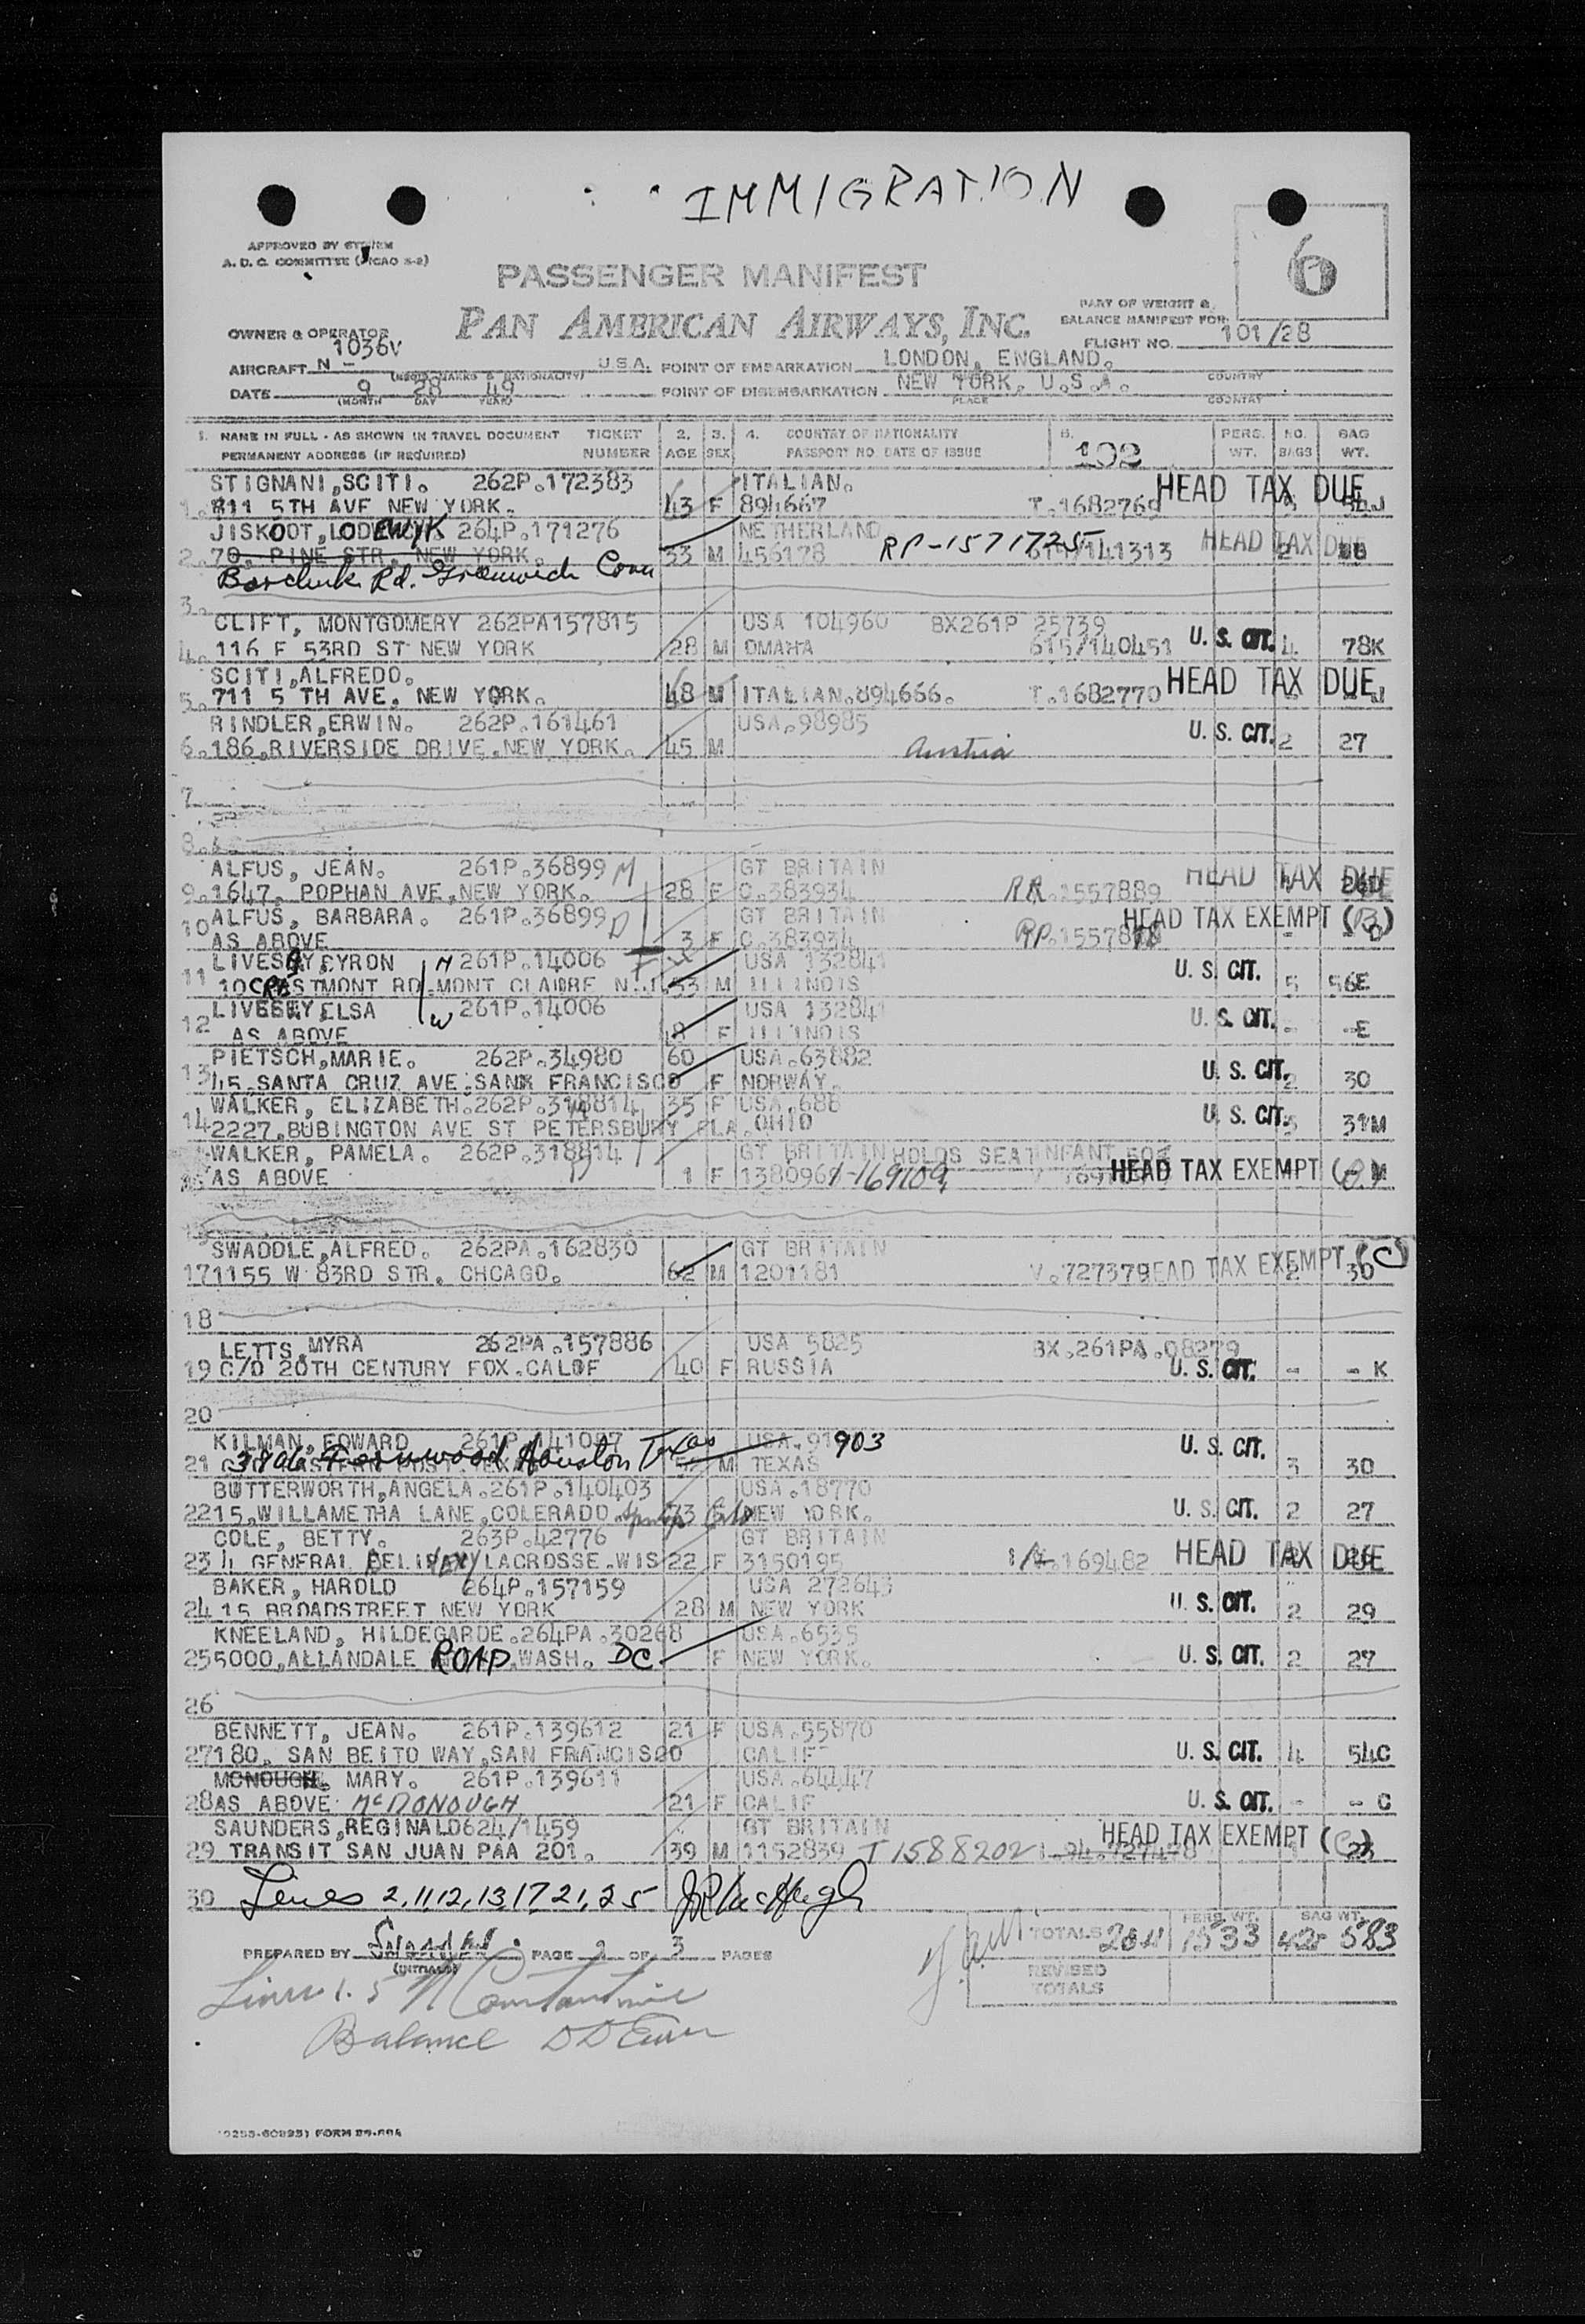 IMMIGRATION
6
APPROVED BY
A. D. C. COMMITTEE
PASSENGER MANIFEST
PAN AMERICAN AIRWAYS, INC.
PART OF WEIGHT &
BALANCE MANIFEST FOR
FLIGHT NO. 101/28
OWNER & OPERATOR
AIRCRAFT N - 1036V U.S.A. POINT OF EMBARKATION LONDON, ENGLAND.
(REG'D MARKS & NATIONALITY) COUNTRY
DATE 9 28 49 POINT OF DISEMBARKATION NEW YORK, U.S.A.
(MONTH DAY YEAR) PLACE COUNTRY
1. NAME IN FULL - AS SHOWN IN TRAVEL DOCUMENT TICKET 2. 3. 4. COUNTRY OF NATIONALITY PERS. NO. BAG
PERMANENT ADDRESS (IF REQUIRED) NUMBER AGE SEX PASSPORT NO DATE OF ISSUE 102 WT. BAGS WT.
STIGNANI,SCITI. 262P.172383 ITALIAN. HEAD TAX DUE
1. 5TH AVE NEW YORK. 43 F 894667 T.1682769
JISKOOT,LODEWYK 264P.171276 NETHERLAND
2. 70. PINE STR. NEW YORK. 33 M 456178 RP-1571725 HEAD TAX DUE
Rd. Greenwich Conn
3.
CLIFT, MONTGOMERY 262PA157815 USA 104960 BX261P 25739
4. 116 E 53RD ST NEW YORK 28 M OMAHA 615/140451 U. S. CIT. 4 78K
SCITI,ALFREDO.
5. 711 5 TH AVE. NEW YORK. 48 M ITALIAN.894666. T.1682770 HEAD TAX DUE
RINDLER,ERWIN. 262P.161461 USA.98985
6. 186,RIVERSIDE DRIVE,NEW YORK. 45 M Austria U. S. CIT. 2 27
7
8.
ALFUS, JEAN. 261P.36899 M GT BRITAIN
9. 1647, POPHAN AVE,NEW YORK. 28 F C.383934 RR.1557889 HEAD TAX DUE
10 ALFUS, BARBARA. 261P.36899 D GT BRITAIN HEAD TAX EXEMPT (B)
AS ABOVE 3 F C.383934
LIVESEY,BYRON H 261P.14006 USA 132841
11 10CRESTMONT RD.MONT CLAIRE N.J. 53 M ILLINOIS U. S. CIT. 5 56E
LIVESEY,ELSA W 261P.14006 USA 132841
12 AS ABOVE F ILLINOIS U. S. CIT. - -E
PIETSCH,MARIE. 262P.34980 60 USA.63882
13 45.SANTA CRUZ AVE.SAN FRANCISCO F NORWAY. U. S. CIT. 2 30
WALKER, ELIZABETH.262P.318814 35 F USA.686
14 2227.BUBINGTON AVE ST PETERSBURY FLA.OHIO U. S. CIT. 3 31M
WALKER, PAMELA. 262P.318814 GT BRITAIN HOLDS SEAT INFANT
AS ABOVE 1 F 138096 V-169109 HEAD TAX EXEMPT
SWADDLE,ALFRED. 262PA.162830 GT BRITAIN
17 1155 W 83RD STR. CHCAGO. 62 M 1201181 V.727379 HEAD TAX EXEMPT (C) 2 30
18
LETTS,MYRA 262PA.157886 USA 5825 BX.261PA.08279
19 C/O 20TH CENTURY FOX.CALOF 40 F RUSSIA U. S. CIT. - - K
20
KILMAN, EDWARD 261P.141087 USA.91903
21 3806 Fernwood Houston Texas M TEXAS U. S. CIT. 3 30
BUTTERWORTH,ANGELA.261P.140403 USA.18770
22 15,WILLAMETHA LANE,COLERADO Springs Colo 73 F NEW YORK. U. S. CIT. 2 27
COLE, BETTY. 263P.42776 GT BRITAIN
23 4 GENERAL DELIVERY LACROSSE.WIS 22 F 3150195 169482 HEAD TAX DUE
BAKER, HAROLD 264P.157159 USA 272643
24 15 BROADSTREET NEW YORK 28 M NEW YORK U. S. CIT. 2 29
KNEELAND, HILDEGARDE.264PA.30268 USA.6535
25 5000,ALLANDALE ROAD.WASH. DC F NEW YORK. U. S. CIT. 2 27
26
BENNETT, JEAN. 261P.139612 21 F USA.55870
27 180. SAN BEITO WAY,SAN FRANCISCO CALIF U. S. CIT. 4 54C
MCNOUGH. MARY. 261P.139611 USA.64447
28 AS ABOVE McDONOUGH 21 F CALIF U. S. CIT. - - C
SAUNDERS,REGINALD624/1459 GT BRITAIN HEAD TAX EXEMPT (C)
29 TRANSIT SAN JUAN PAA 201. 39 M 1152839 T 1588202
30 Lines 2,11,12,13,17,21,25
PREPARED BY PAGE 2 OF 3 PAGES TOTALS PERS. WT. 1533 BAG WT. 583
(INITIALS)
REVISED
TOTALS
Lines 1. 5
Balance